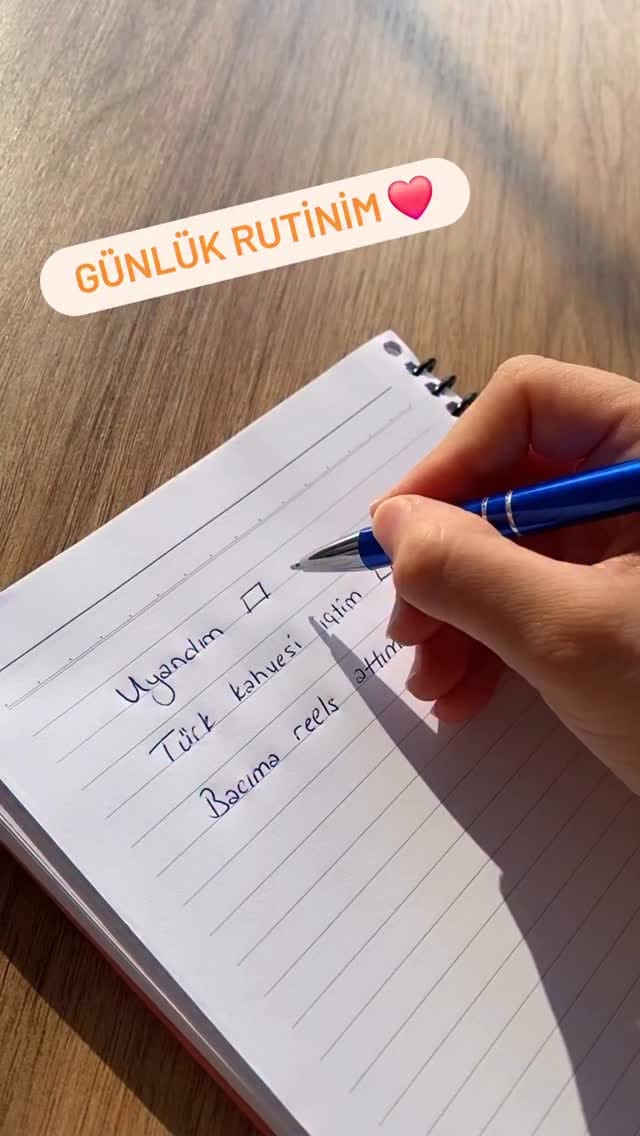 GÜNLÜK RUTİNİM
Uyandım
Türk kahvesi içtim
Bacıma reels attım